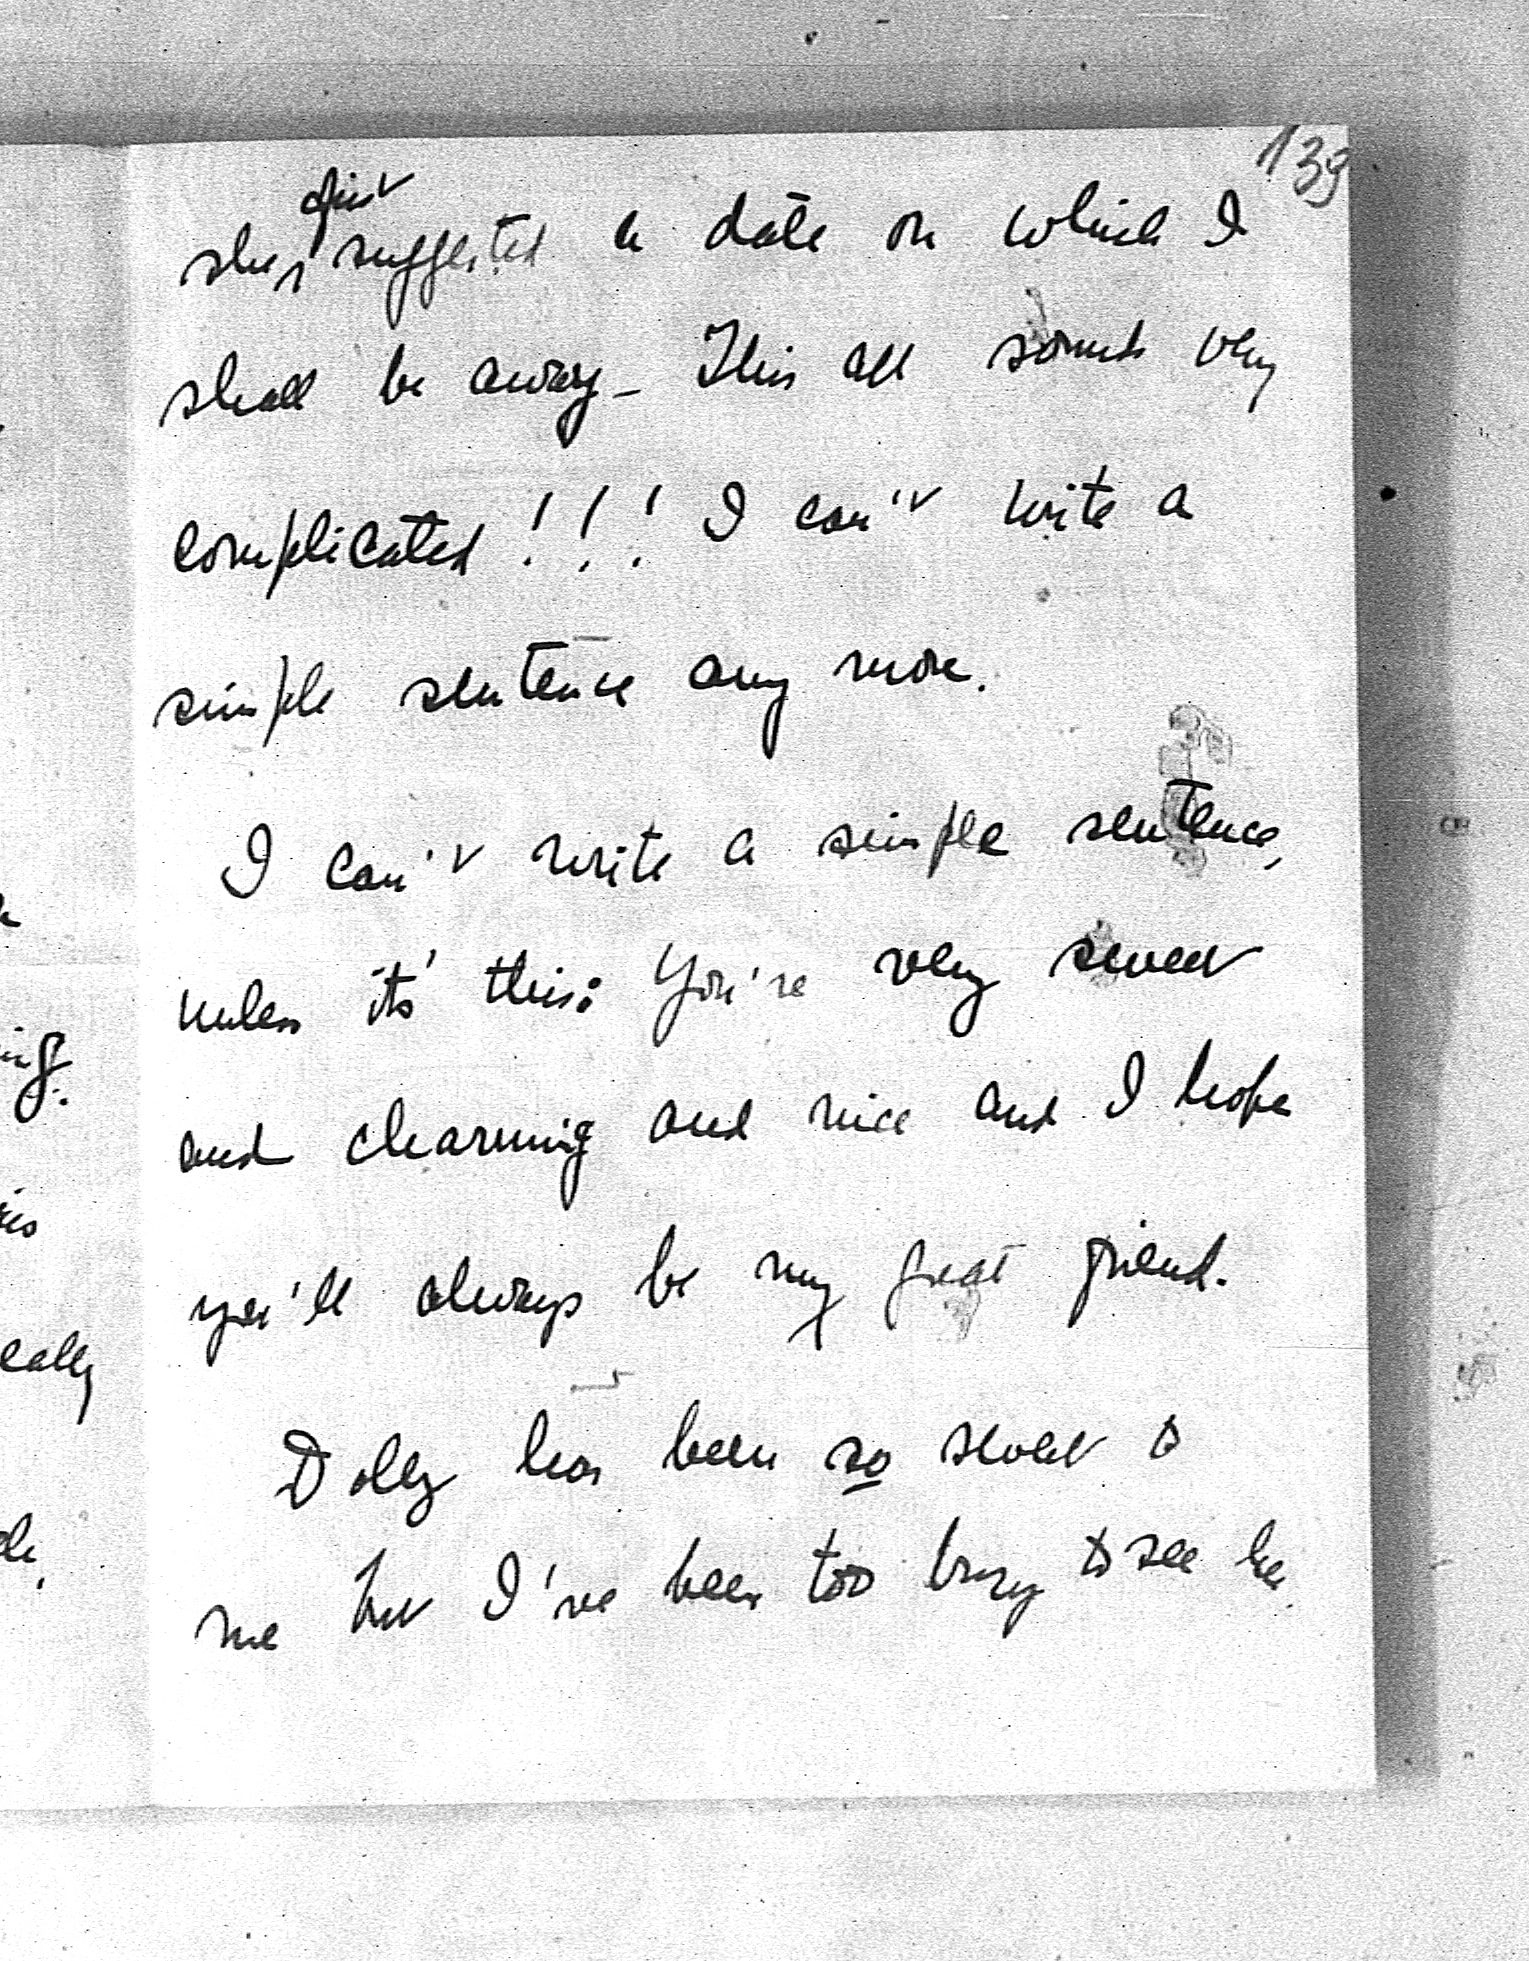 139
first
she suggested a date on which I
shall be away – This all sounds very
complicated!!! I can't write a
simple sentence any more.
I can't write a simple sentence,
unless it's this: You're very sweet
and charming and nice and I hope
you'll always be my great friend.
Dolly has been so sweet to
me but I've been too busy to see her.
ing.
cally